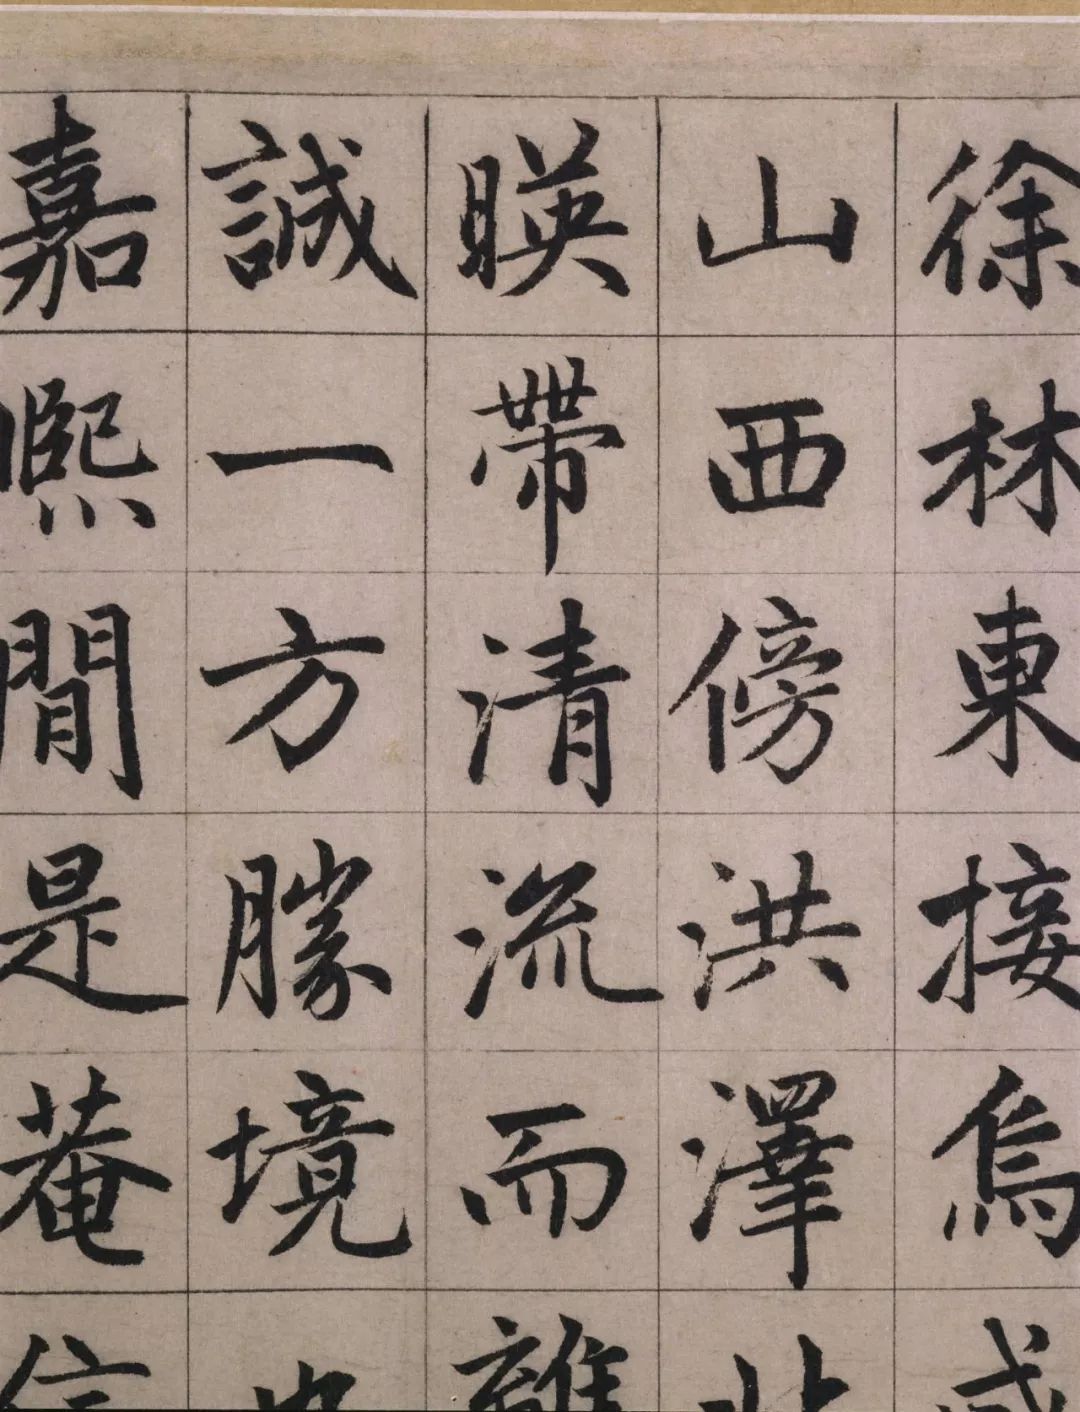 徐林東接烏
山西傍洪澤
暎帶清流而離
誠一方勝境
嘉熈間是菴信